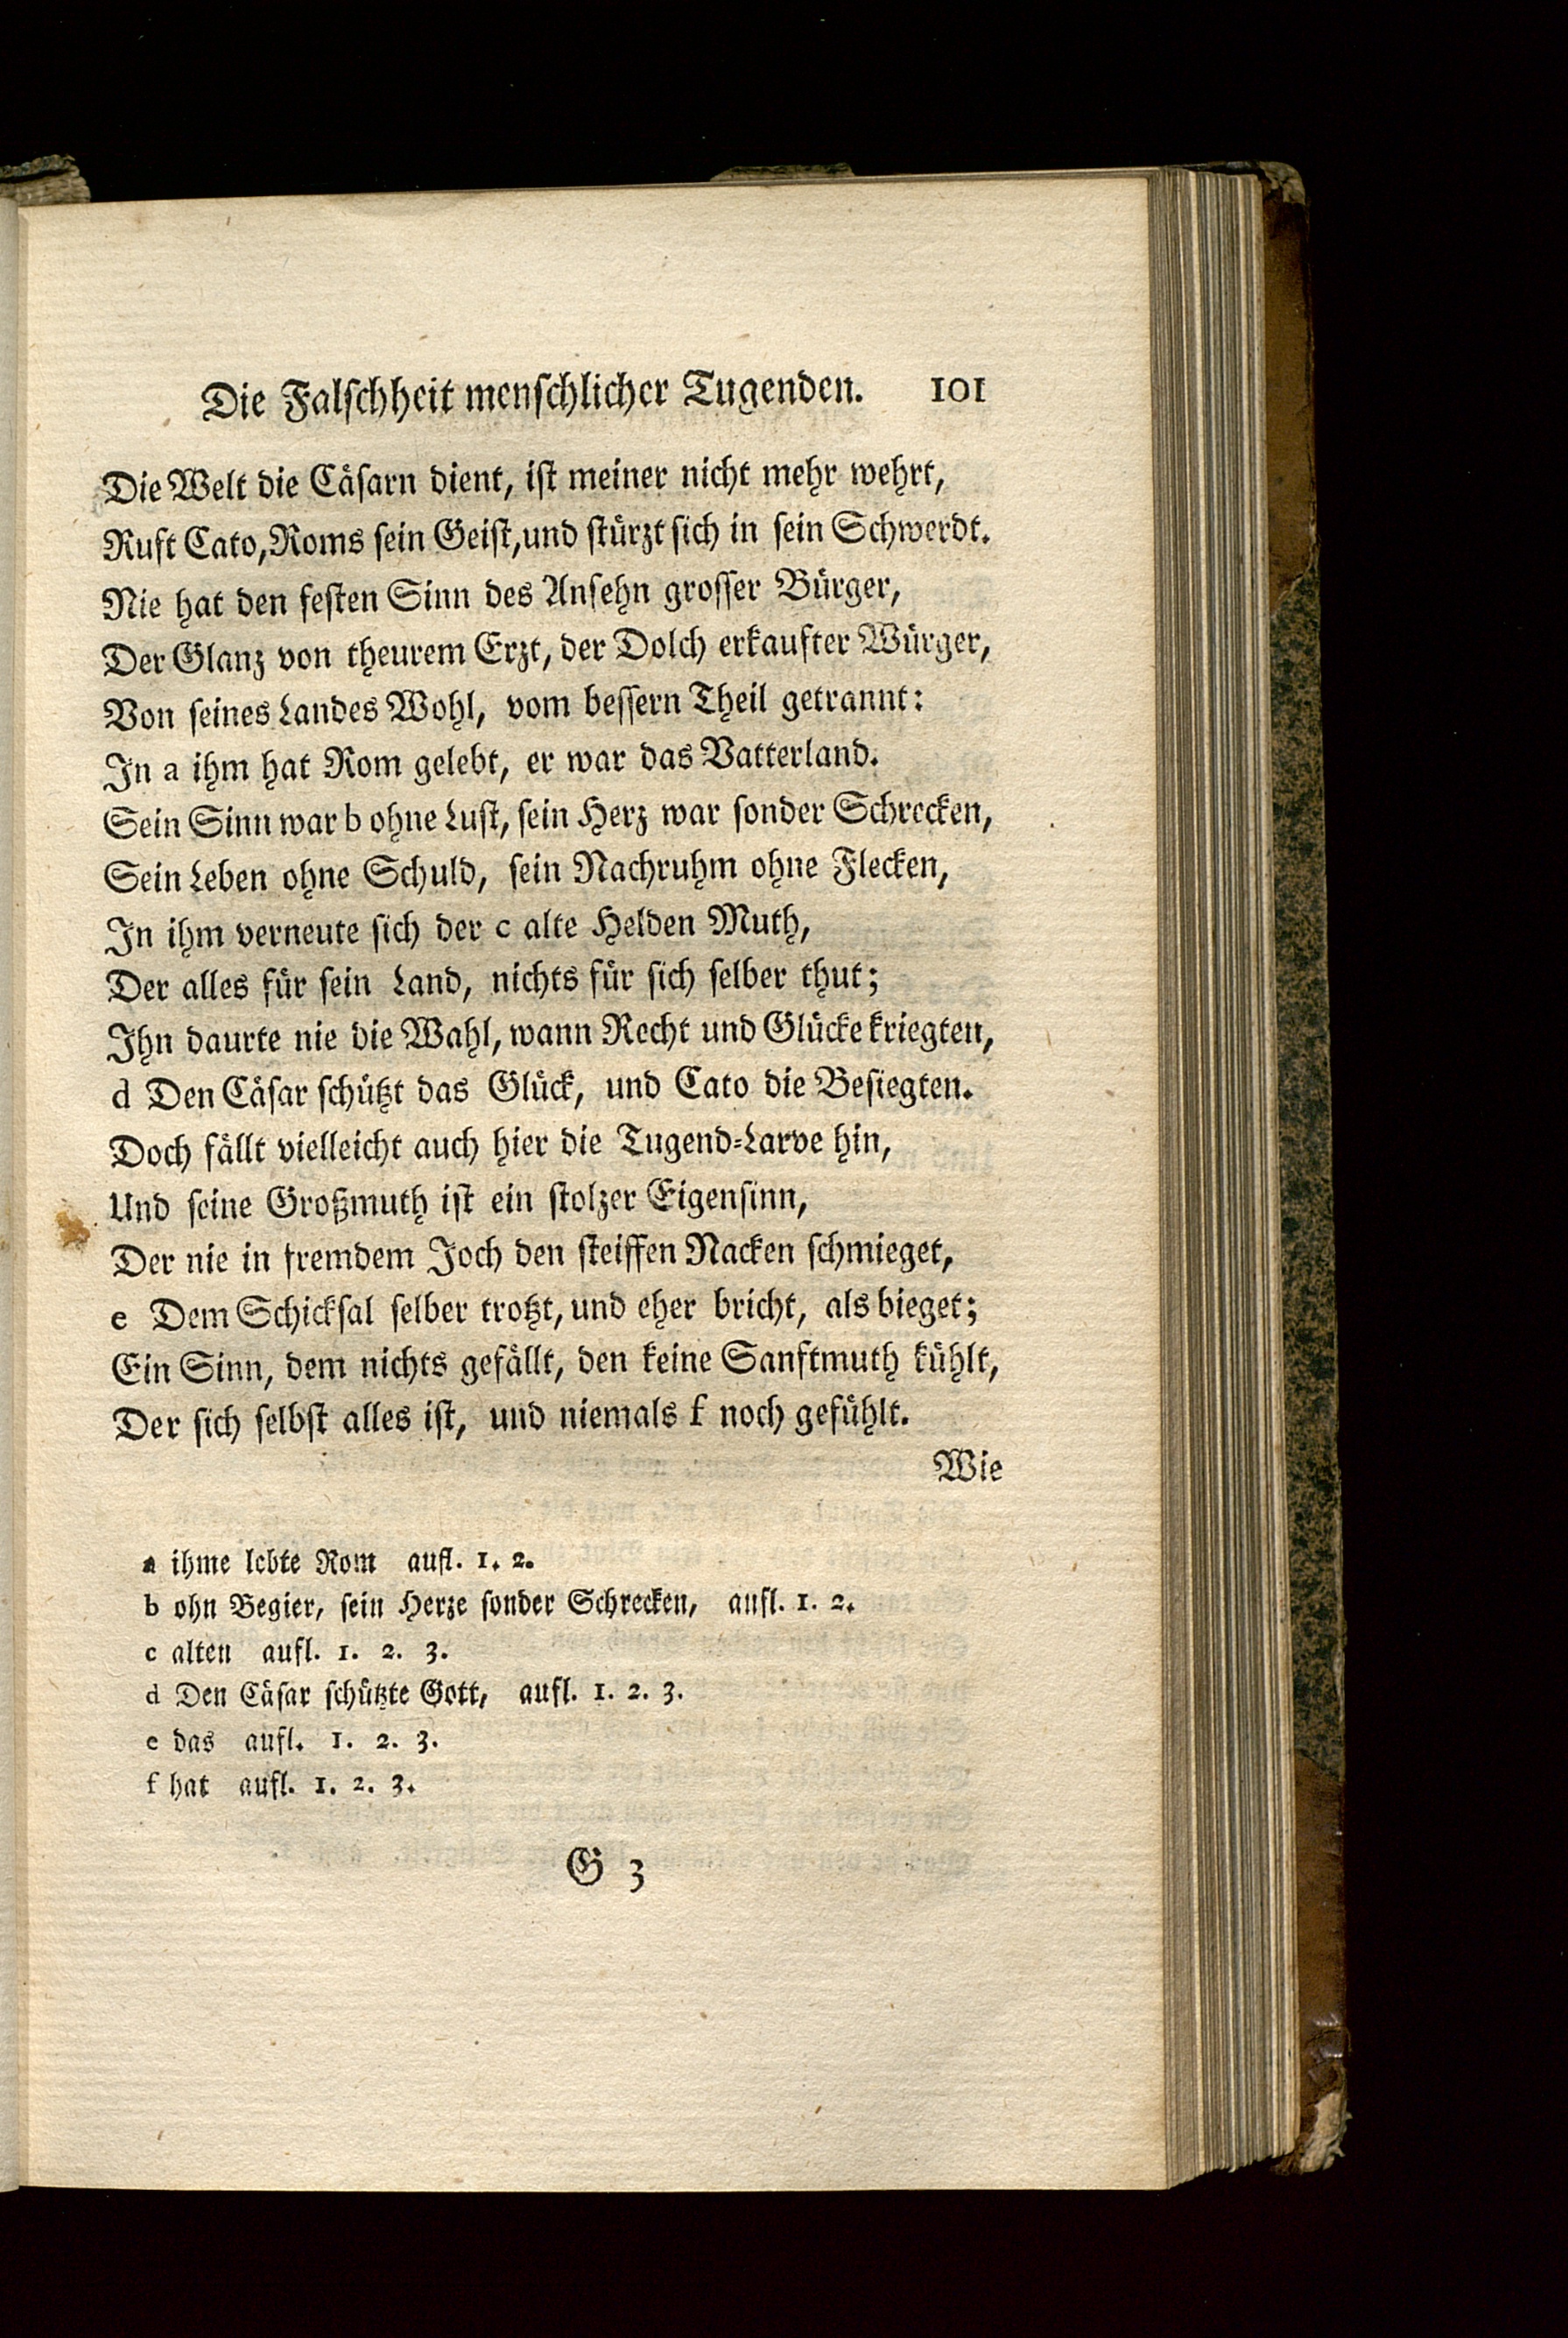 Die Falschheit menschlicher Tugenden. 101
Die Welt die Cäsarn dient, ist meiner nicht mehr wehrt,
Ruft Cato, Roms sein Geist, und stürzt sich in sein Schwerdt.
Nie hat den festen Sinn des Ansehn grosser Bürger,
Der Glanz von theurem Erzt, der Dolch erkaufter Würger,
Von seines Landes Wohl, vom bessern Theil getrannt:
In a ihm hat Rom gelebt, er war das Vatterland.
Sein Sinn war b ohne Lust, sein Herz war sonder Schrecken,
Sein Leben ohne Schuld, sein Nachruhm ohne Flecken,
In ihm verneute sich der c alte Helden Muth,
Der alles für sein Land, nichts für sich selber thut;
Ihn daurte nie die Wahl, wann Recht und Glücke kriegten,
d Den Cäsar schützt das Glück, und Cato die Besiegten.
Doch fällt vielleicht auch hier die Tugend-Larve hin,
Und seine Großmuth ist ein stolzer Eigensinn,
Der nie in fremdem Joch den steiffen Nacken schmieget,
e Dem Schicksal selber trotzt, und eher bricht, als bieget;
Ein Sinn, dem nichts gefällt, den keine Sanftmuth kühlt,
Der sich selbst alles ist, und niemals f noch gefühlt.
Wie
a ihme lebte Rom aufl. 1. 2.
b ohn Begier, sein Herze sonder Schrecken, aufl. 1. 2.
c alten aufl. 1. 2. 3.
d Den Cäsar schützte Gott, aufl. 1. 2. 3.
e das aufl. 1. 2. 3.
f hat aufl. 1. 2. 3.
G 3